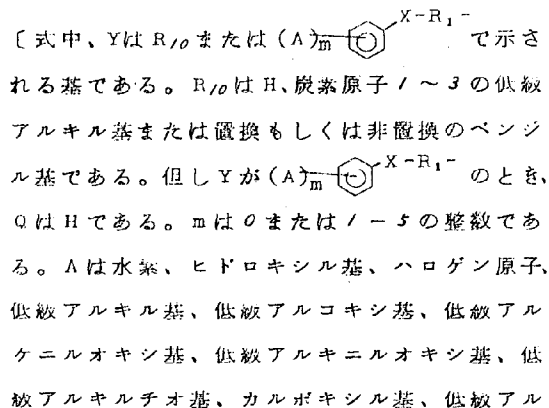 〔式中、YはR₁₀または(A)m X-R₁- で示さ
れる基である。R₁₀はH、炭素原子1～3の低級
アルキル基または置換もしくは非置換のベンジ
ル基である。但しYが(A)m X-R₁- のとき、
QはHである。mは0または1－5の整数であ
る。Aは水素、ヒドロキシル基、ハロゲン原子、
低級アルキル基、低級アルコキシ基、低級アル
ケニルオキシ基、低級アルキニルオキシ基、低
級アルキルチオ基、カルボキシル基、低級アル